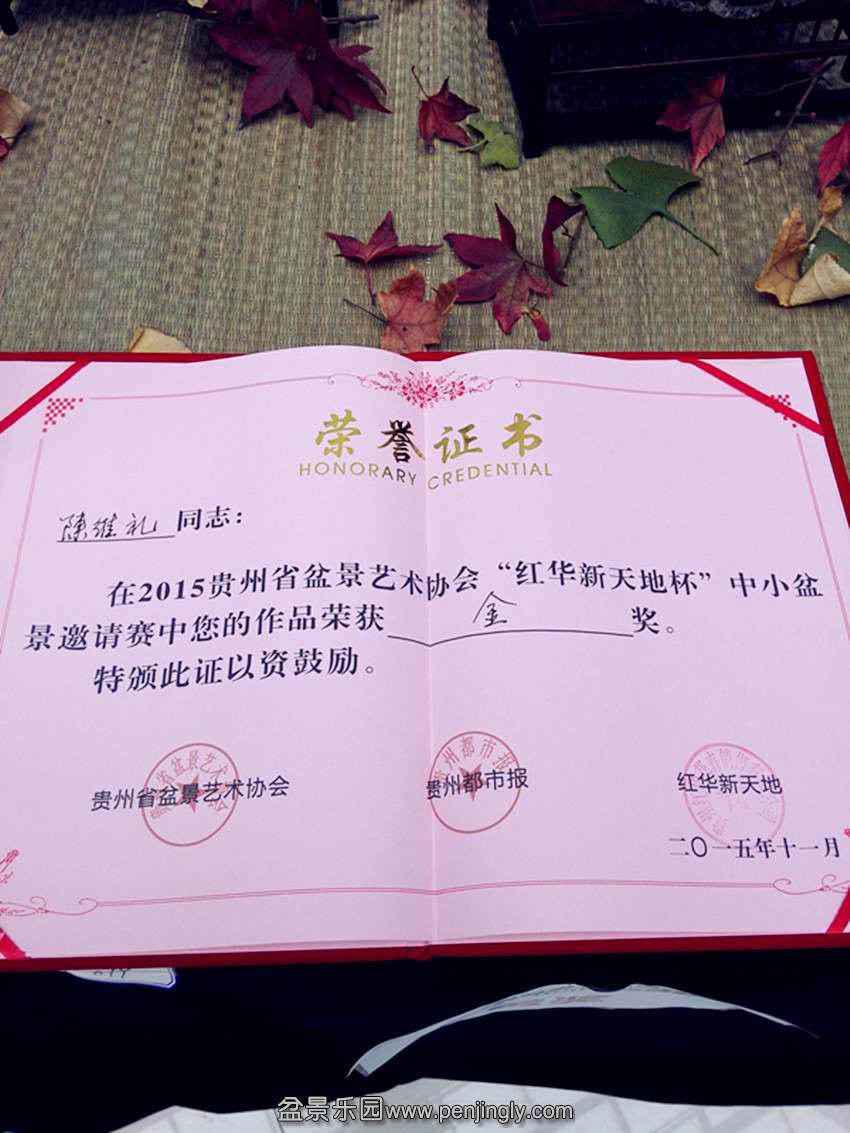 荣誉证书
HONORARY CREDENTIAL
陈维礼 同志：
在2015贵州省盆景艺术协会“红华新天地杯”中小盆
景邀请赛中您的作品荣获 金 奖。
特颁此证以资鼓励。
贵州省盆景艺术协会
贵州都市报
红华新天地
二〇一五年十一月
盆景乐园www.penjingly.com